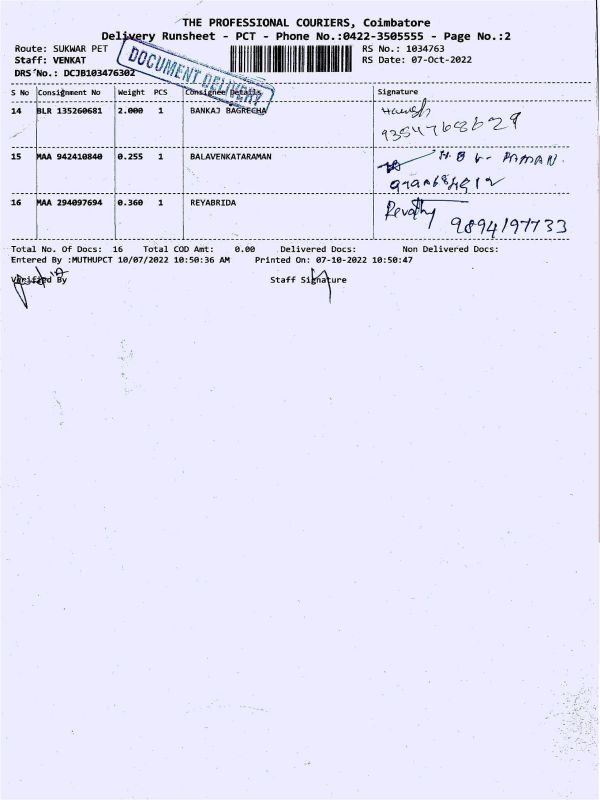 THE PROFESSIONAL COURIERS, Coimbatore
Delivery Runsheet - PCT - Phone No.:0422-3505555 - Page No.:2
Route: SUKWAR PET RS No.: 1034763
Staff: VENKAT RS Date: 07-Oct-2022
DRS No.: DCJB103476302
DOCUMENT DELIVERY
S No Consignment No Weight PCS Consignee Details Signature
14 BLR 135260681 2.000 1 BANKAJ BAGRECHA
9354768629
15 MAA 942410840 0.255 1 BALAVENKATARAMAN
16 MAA 294097694 0.360 1 REYABRIDA Revathy
9894197733
Total No. Of Docs: 16 Total COD Amt: 0.00 Delivered Docs: Non Delivered Docs:
Entered By :MUTHUPCT 10/07/2022 10:50:36 AM Printed On: 07-10-2022 10:50:47
Verified By Staff Signature